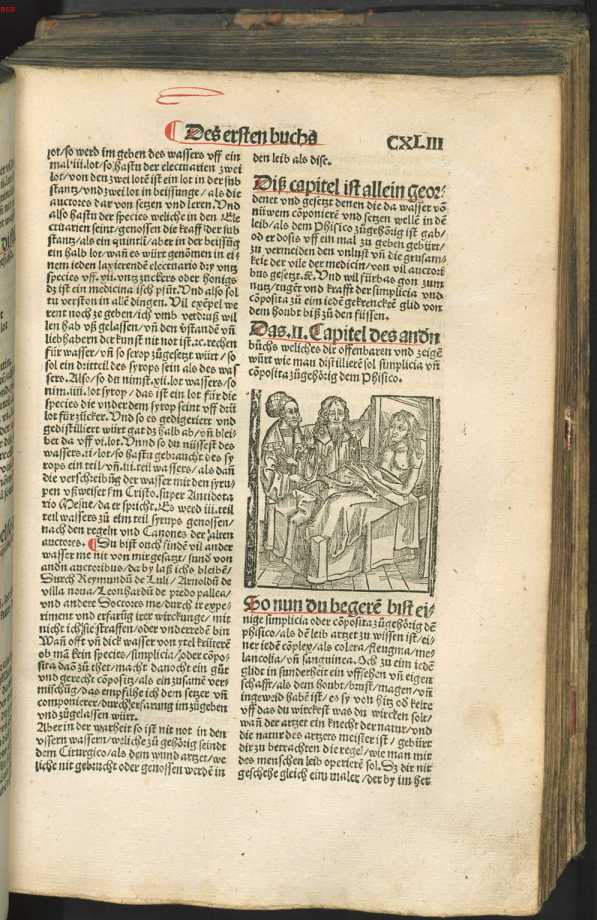 Des ersten buchs
CXLIII
lot/so werd im geben des wassers vff ein
mal·iii·lot/so hastu der electuarien zwei
lot/von den zwei lotē ist ein lot in der sub
stantz/vnd zwei lot in beissunge/als die
auctores dar von setzen vnd leren. Vnd
also hastu der species weliche in den Ele
ctuarien seint/genossen die krafft der sub
stantz/als ein quintli/aber in der beissūg
ein halb lot/wañ es würt genōmen in ei
nem ieden laxierendē electuario dry vntz
species vff.xii.vntz zuckers oder honigs
dz ist ein medicina isch pfūt. Vnd also sol
tu verston in allē dingen. Vil exēpel we
rent noch ze geben/ich vmb verdruß wil
len hab vß gelassen/vñ den vstandē vñ
liebhabern der kunst nit not ist.ꝛc.rechen
für wasser/vñ so serop zūgesetzt würt/so
sol ein dritteil des syrops sein als des was
sers. Also/so du nimst.xii.lot wassers/so
nim.iiii.lot syrop/das ist ein lot für die
species die vnder dem syrop seint vff drū
lot für zucker. Vnd so es gedigeriert vnd
gedistilliert würt gat dz halb ab/vñ blei
ber da vff vi.lot. Vnnd so du nüssest des
wassers.ii.lot/so hastu gebrucht des sy
rops ein teil/vñ.iii.teil wassers/als dañ
die verschreibūg der wasser mit den syru-
pen vßweiset ſm Cristo.super Antidota
rio Mesue/da er spricht. Es werd iii.teil
teil wassers zū eim teil syrups genossen/
nach den regeln vnd Canones der alten
auctores. Du bist ouch findē vil ander
wasser me nit von mir gesatzt/sund von
andn auctoribus/da by laß ichs bleibē/
Durch Reymundū de Luli/Arnoldū de
villa noua/Leonhardū de predo pallea/
vnd andere Doctores me/durch ir expe-
riment vnd erfarūg irer wirckunge/mit
nicht ich sie straffen/oder vnderredē bin
Wañ offt vñ dick wasser von ytel krūterē
ob mā kein species/simplicia/oder cōpo-
sita daā zū thet/macht dañocht ein gūt
vnd gerecht cōpositz/als ein zusamē ver-
mischūg/das empfilhe ich dem setzer vñ
componierer/durch erfarung im zūgeben
vnd zūgelassen würt.
Aber in der warheit so ist nit not in den
vssern wassern/weliche zū gehörig seindt
dem Cirurgico/als dem wund artzet/we
liche nit gebrucht oder genossen werdē in
den leib als dise.
Diß capitel ist allein geor-
denet vnd gesetzt denen die da wasser vō
nüwem cōponierē vnd setzen wellē in dē
leib/als dem Phisico zūgehörig ist gab/
od er dosis vff ein mal zu geben gebürt/
zu vermeiden den vnlust vñ die grusam-
keit der vile der medicin/von vil auctori
bus gesetzt.ꝛc. Vnd wil fürbas gon zum
nutz/tuget vnd krafft der simplicia vnd
cōposita zū eim iedē gekrencktē glid von
dem houbt biß zū den füssen.
Das.II.Capitel des andn
būchs weliches dir offenbaren vnd zeigē
würt wie man distillierē sol simplicia vñ
cōposita zūgehörig dem Phisico.
So nun du begerē bist ei-
nige simplicia oder cōposita zūgehörig dē
phisico/als dē leib artzet zu wissen ist/ei-
ner iedē cōplex/als colera/fleugma/me-
lancolia/vñ sanguinea. Ich zu eim iedē
glidt in sunderheit ein vffsehen vñ eigen
schafft/als dem houbt/brust/magen/vñ
ingeweid habē ist/es sy von hitz od kelte
vff das du wirckest was du wircken solt/
wañ der artzet ein knecht der natur/vnd
die natur des artzets meister ist/gebürt
dir zu betrachten die regel/wie man mit
des menschen leib operierē sol. Dz dir nit
geschehe gleich eim maler/der by im het